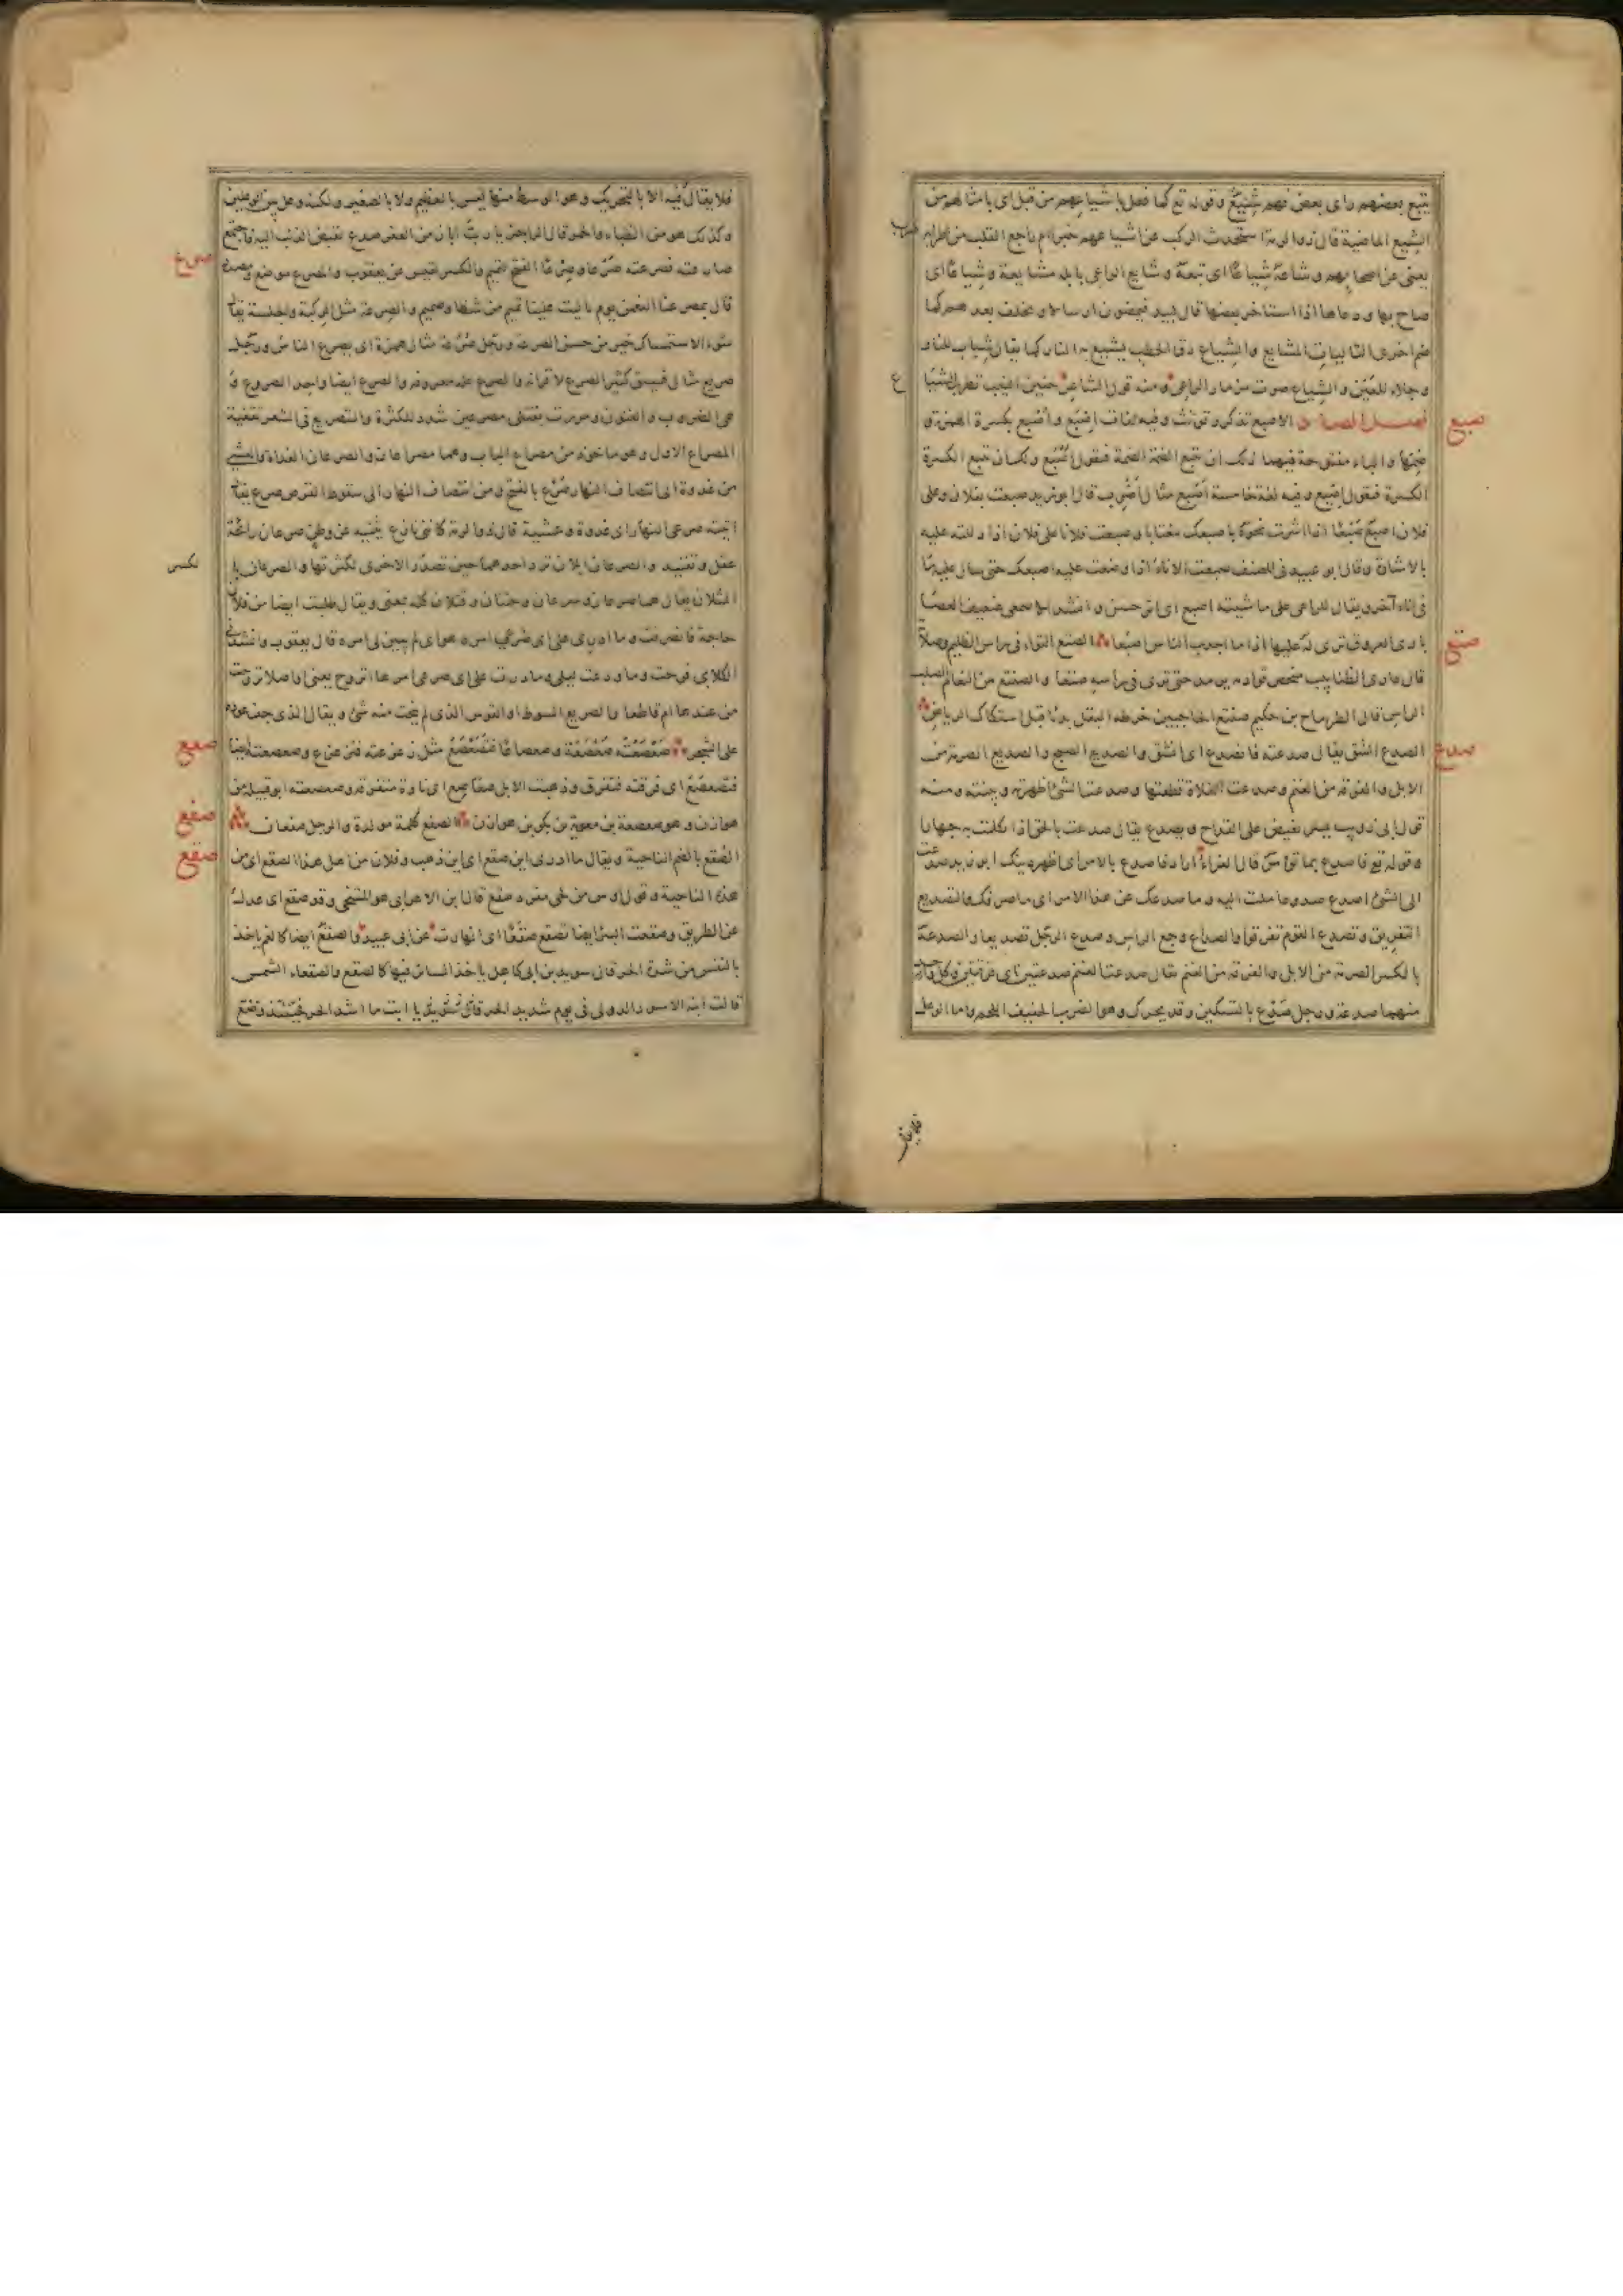 يتبع بعضهم راى بعض فهم شِيَعٌ وقوله تع كما فعل باشياعهم من قبل اى بامثالهم من
الشيع الماضية قال ذو الرمة استحدث الركب عن اشياعهم خبرا ام راجع القلب من اطرابه طرب
يعنى عن اصحابهم وشاعه شياعًا اى تبعه وشايع الراعى بابله مشايعة وشياعًا اى
صاح بها ودعاها اذا استاخر بعضها قال لبيد فيمضون ارسالا ونخلف بعدهم كما
ضم اخرى التاليات المشايع والشياع دق الحطب يشيع به النار كما يقال شباب للنار
وجلاء للعين والشياع صوت مزمار الراعى ومنه قول الشاعر حنين النيب تطرب للشيا
ع
صبع
فصل الصاد الاصبع تذكر وتونث وفيه لغات اِصْبَع واُصْبَع بكسرة الهمزة و
ضمها والباء مفتوحة فيهما ولك ان تتبع الضمة الضمة فتقول اُصْبُع ولك ان تتبع الكسرة
الكسرة فتقول اِصْبِع وفيه لغة خامسة اَصْبِع مثال اَضْرِب قال ابو زيد صبعت بفلان وعلى
فلان اصبع صَبْعًا اذا اشرت نحوه باصبعك مغتابا وصبعت فلانا على فلان اذا دللته عليه
بالاشارة وقال ابو عبيد فى المصنف صبعت الاناء اذا وضعت عليه اصبعك حتى سال عليه ما
فى اناء آخر ويقال للراعى على ماشيته اصبع اى اثر حسن وانشد الاصمعى ضعيف العصا
صتع
بادى العروق ترى له عليها اذا ما اجدب الناس اصبعا الصتع التواء فى راس الظليم وصلا
قال عارى الظنابيب منحص قوادمه يرمد حتى ترى فى راسه صتعا والصنتع من النعام الصلب
الراس قال الطرماح بن حكيم صنتع الحاجبين خرطه البقل بديا قبل استكاك الرياض
صدع
الصدع الشق يقال صدعته فانصدع اى انشق والصديع الصبح والصديع الصرمة من
الابل والفرقة من الغنم وصدعت الفلاة قطعتها وصدعت الشئ اظهرته وبينته ومنه
قول ابى ذويب يسر يفيض على القداح ويصدع يقال صدعت بالحق اذا تكلمت به جهارا
وقوله تع فاصدع بما تؤمر قال الفراء اراد فاصدع بالامر اى اظهر دينك ابو زيد صدعت
الى الشئ اصدع صدوعا ملت اليه وما صدعك عن هذا الامر اى ما صرفك والتصديع
التفريق وتصدع القوم تفرقوا والصداع وجع الراس وصدع الرجل تصديعا والصدعة
بالكسر الصرمة من الابل والفرقة من الغنم يقال صدعت الغنم صدعتين اى فرقتين وكل واحدة
منهما صدعة ورجل صَدْع بالتسكين وقد يحرك وهو الضرب الخفيف اللحم واما الوعل
فلا يقال
فلا يقال فيه الا بالتحريك وهو الوسط منها ليس بالعظيم ولا بالصغير ولكنه وعل بين الوعلين
وكذلك هو من الظباء والحمر قال الراجز يا رب اباز من العفر صدع تقبض الذئب اليه فاجتمع
صرع
صارعته فصرعته صَرْعا وصِرْعًا الفتح لتميم والكسر لقيس عن يعقوب والمصرع موضع ومصدر
قال بمصرعنا النعمن يوم تالبت علينا تميم من شظا وصميم والصرعة مثل الركبة والجلسة يقال
سوء الاستمساك خير من حسن الصرعة ورجل صُرَعة مثال همزة اى يصرع الناس ورجل
صريع مثال فسيق كثير الصرع لاقرانه والصرع علة معروفة والصرع ايضا واحد الصروع و
هى الضروب والفنون ومررت بقتلى مصرعين شدد للكثرة والتصريع فى الشعر تقفية
المصراع الاول وهو ماخوذ من مصراع الباب وهما مصراعان والصرعان الغداة والعشى
من غدوة الى انتصاف النهار صَرْع بالفتح ومن انتصاف النهار الى سقوط القرص صرع يقال
اتيته صرعى النهار اى غدوة وعشية قال ذو الرمة كاننى نازع يثنيه عن وطن صرعان رائحة
عقل وتقييد والصرعان ابلان ترد احدهما حين تصدر الاخرى لكثرتها والصرعان با
لكسر
المثلان يقال هما صرعان وشرعان وحتنان وقتلان كله بمعنى ويقال طلبت ايضا من فلان
حاجة فانصرفت وما ادرى على اى صرعى امره هو اى لم يتبين لى امره قال يعقوب وانشدنى
الكلابى فرحت وما ودعت ليلى وما درت على اى صرعى امرها اتروح يعنى اواصلا تروحت
من عندها ام قاطعا والصريع السوط او القوس الذى لم ينحت منه شئ ويقال الذى جف عوده
صعع
على الشجر صَعْصَعْته صَعْصَعَة وصعصاعًا فَتَصَعْصَعَ مثل زعزعته فتزعزع وصعصعته ايضا
فتصعصع اى فرقته فتفرق وذهبت الابل صعاصع اى نادة متفرقة وصعصعة ابو قبيلة من
صفع
هوازن وهو صعصعة بن معوية بن بكر بن هوازن الصفع كلمة مولدة والرجل صفعان
صقع
الصُقع بالضم الناحية ويقال ما ادرى اين صقع اى اين ذهب وفلان من اهل هذا الصقع اى من
هذه الناحية وقول اوس من لحى مفرد صقع قال ابن الاعرابى هو المتنحى وقد صقع اى عدل
عن الطريق وصقعت البئر ايضا تصقع صقعًا اى انهارت عن ابى عبيد والصقع ايضا كالغم ياخذ
بالنفس من شدة الحر قال سويد بن ابى كاهل ياخذ السائر فيها كالصقع والصقعاء الشمس
قالت ابنة الاسود الدولى فى يوم شديد الحر يا ابت ما اشد الحر